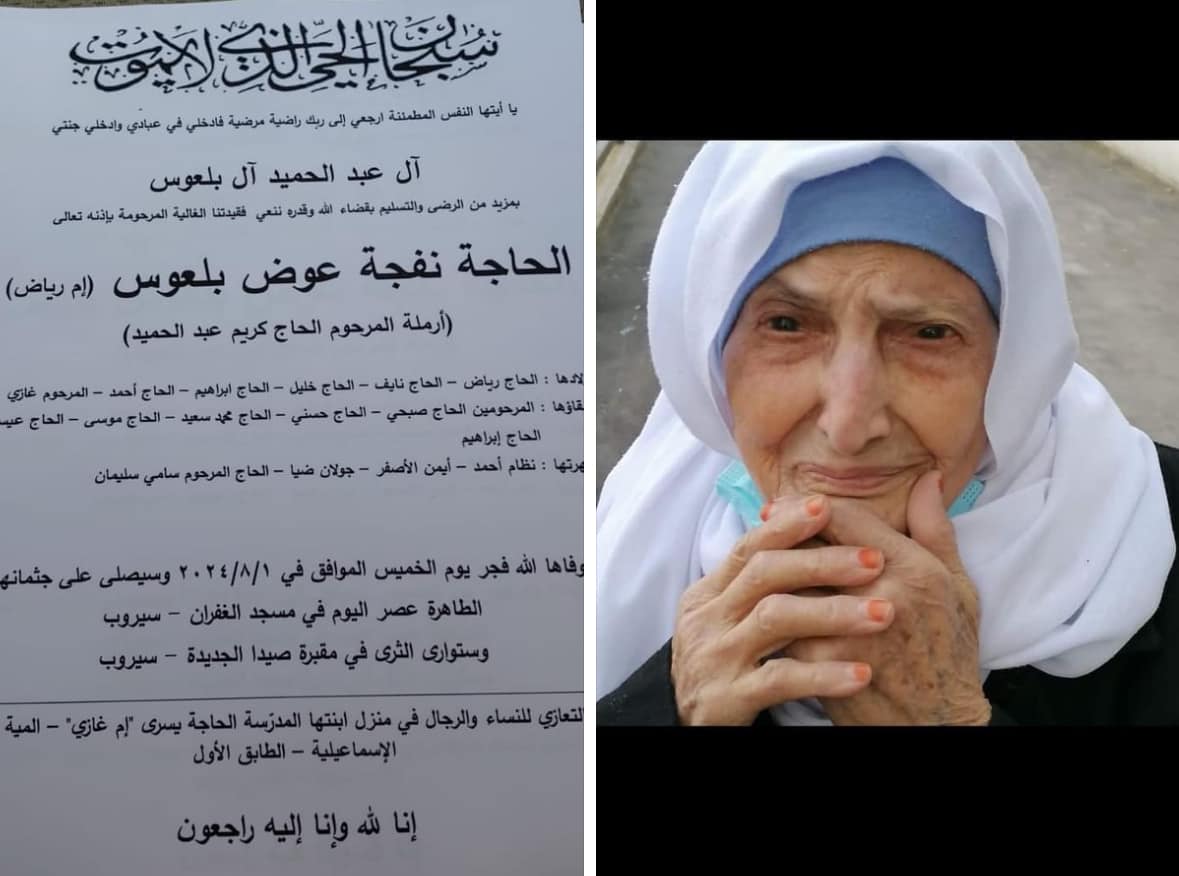 سبحان الحي الذي لا يموت
يا أيتها النفس المطمئنة ارجعي إلى ربك راضية مرضية فادخلي في عبادي وادخلي جنتي
آل عبد الحميد آل بلعوس
بمزيد من الرضى والتسليم بقضاء الله وقدره ننعي فقيدتنا الغالية المرحومة بإذنه تعالى
الحاجة نفجة عوض بلعوس (إم رياض)
(أرملة المرحوم الحاج كريم عبد الحميد)
لادها : الحاج رياض – الحاج نايف – الحاج خليل – الحاج ابراهيم – الحاج أحمد – المرحوم غازي
قاؤها : المرحومين الحاج صبحي – الحاج حسني – الحاج محمد سعيد – الحاج موسى – الحاج عيس
الحاج إبراهيم
هرتها : نظام أحمد – أيمن الأصفر – جولان ضيا – الحاج المرحوم سامي سليمان
وفاها الله فجر يوم الخميس الموافق في ٢٠٢٤/٨/١ وسيصلى على جثمانه
الطاهرة عصر اليوم في مسجد الغفران – سيروب
وستوارى الثرى في مقبرة صيدا الجديدة – سيروب
التعازي للنساء والرجال في منزل ابنتها المدرّسة الحاجة يسرى "إم غازي" – المية
الإسماعيلية – الطابق الأول
إنا لله وإنا إليه راجعون